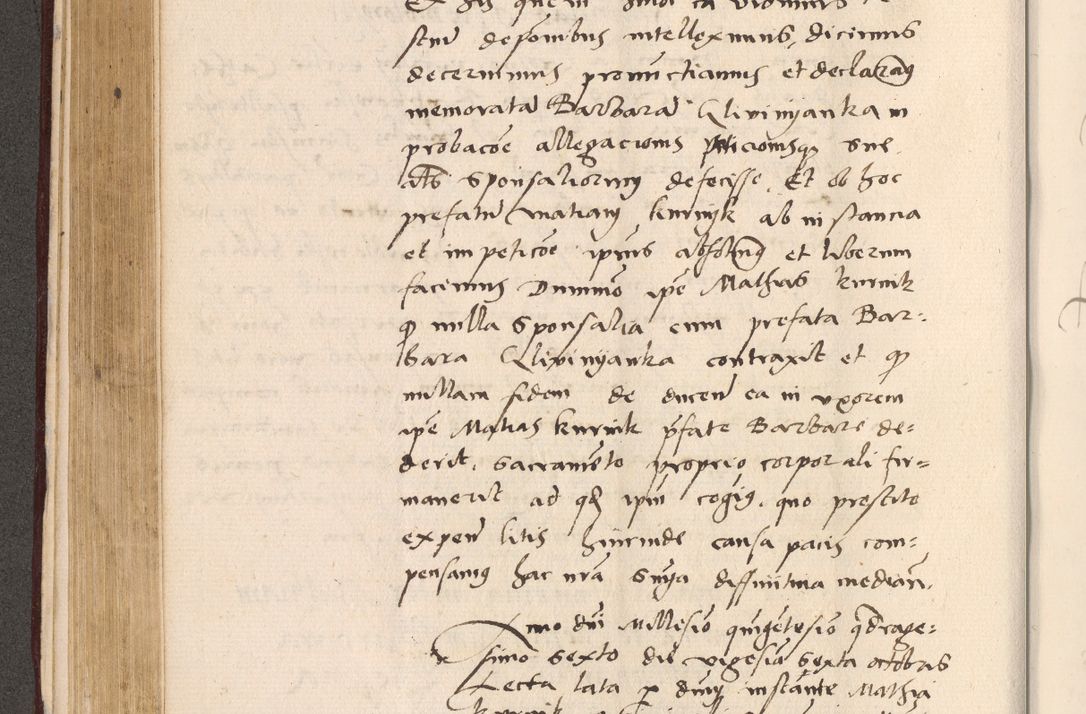 stium deponibus intelleximus, dicimus
decernimus pronunctiamus et declaramus
memoratam Barbaram Glivinyanka in
probacoe allegacionis peticionisque sue
als sponsaliorum defecisse. Et ob hoc
prefatum Matiam kurnik ab instancia
et impeticoe ipius absolvimus et liberum
facimus Dummo ipe Mathias kurnik
quod nulla sponsalia cum prefata Bar:
bara Glivinyanka contraxit et quod
nullam fidem de ducendo ea in uxorem
ipe Matias kurnik pfate Barbare de:
derit, sacramento proprio corporali fir=
maverit ad quod ipm cogimus. quo prestito
expensas litis hincinde causa pacis com:
pensamus hac nra snya diffinitiva median.
Anno dni Millesio quigetesio qdrage:
simo sexto die vigesia sexta octobris
Lecta lata p dnum instante Mathia